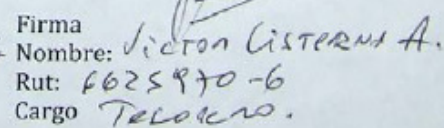 Firma
Nombre: Victor Cisterna A.
Rut: 6625970-6
Cargo Tesorero.